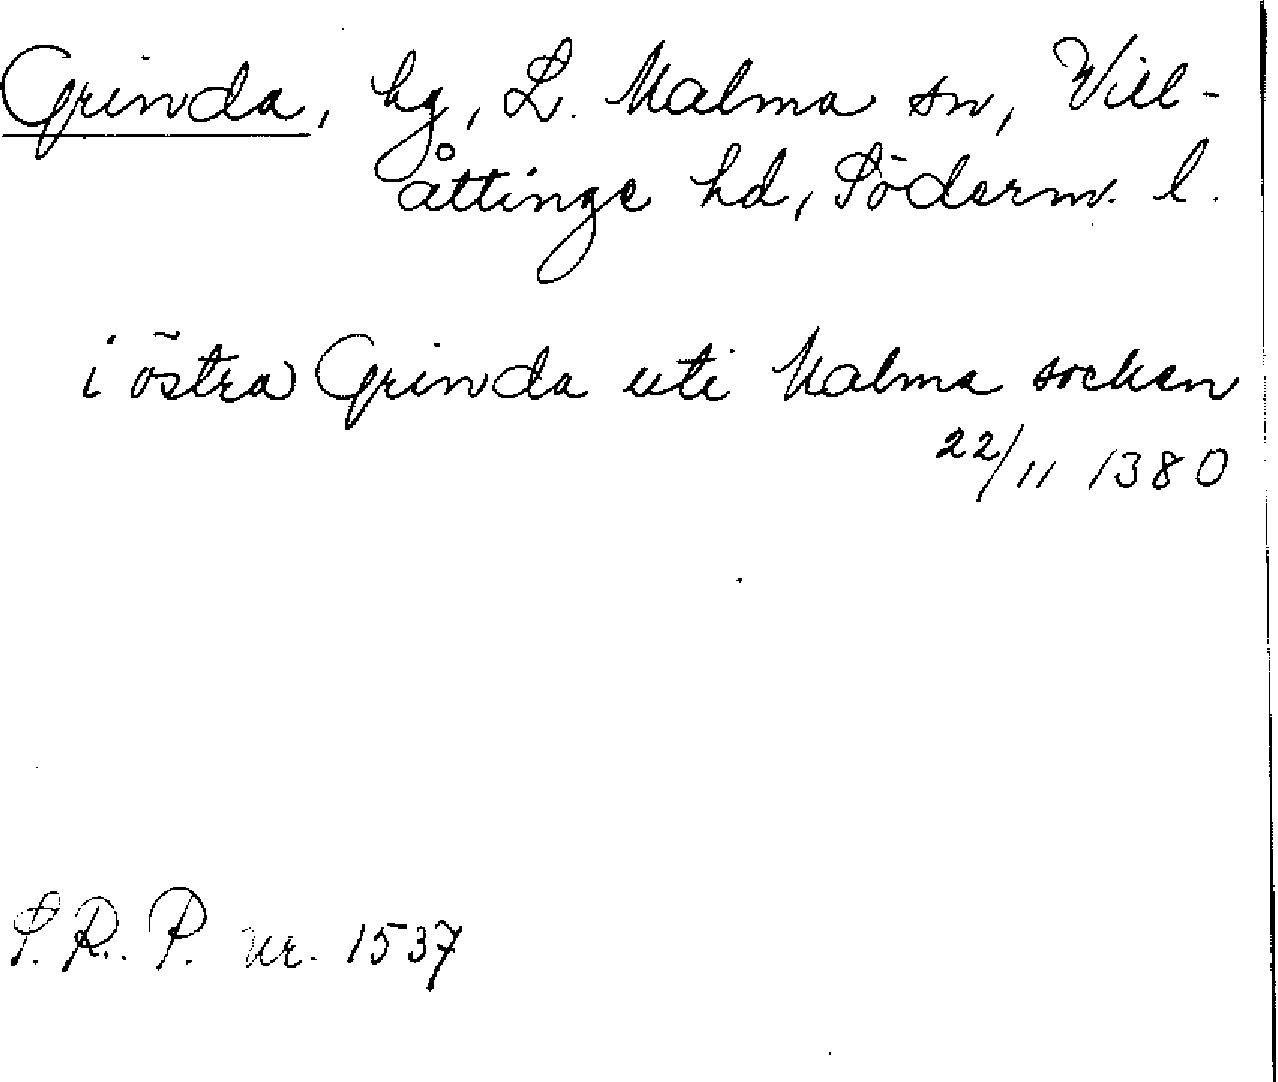 Grinda, hg, L. Malma sn, Vill-
åttinge hd, Söderm. l.
i östra Grinda uti Malma socken
22/11 1380
S.R.P. nr. 1537